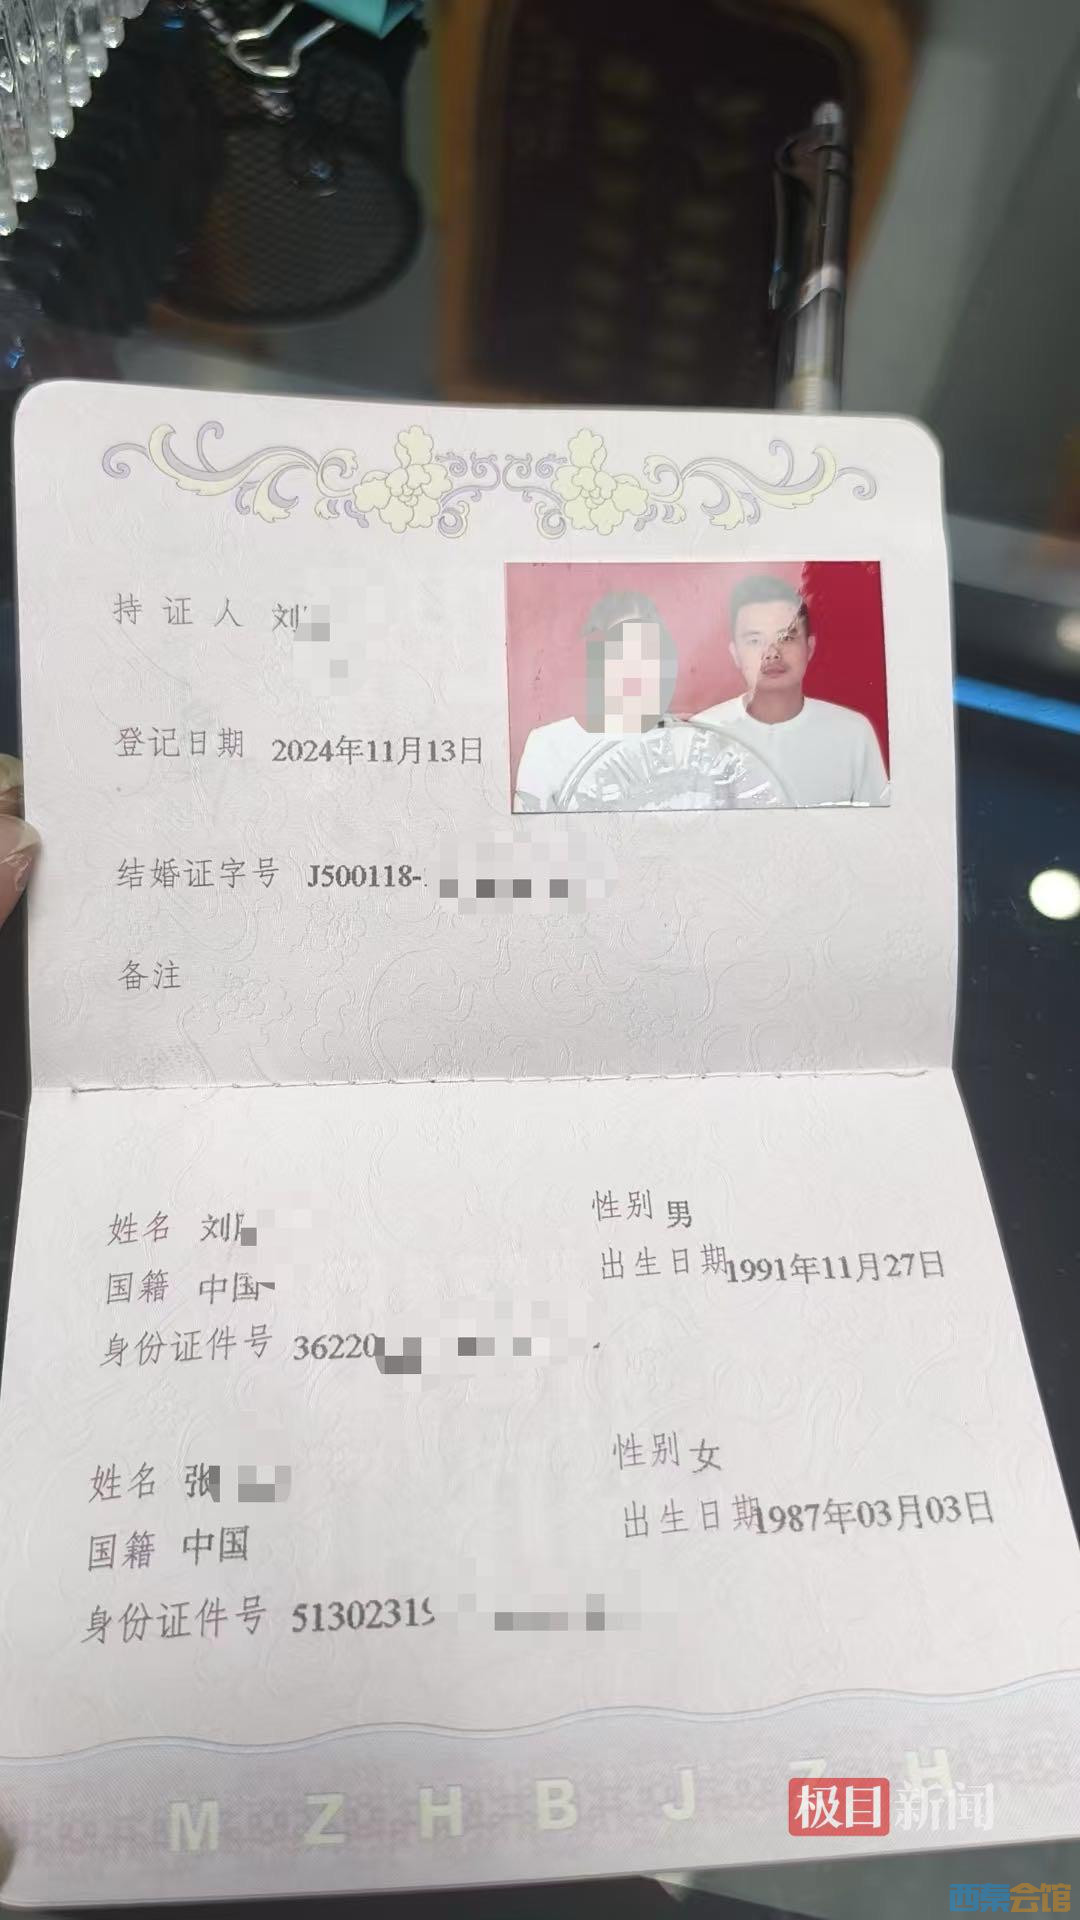 持证人 刘
登记日期 2024年11月13日
结婚证字号 J500118-
备注
姓名 刘
性别 男
国籍 中国
出生日期 1991年11月27日
身份证件号 36220
姓名 张
性别 女
国籍 中国
出生日期 1987年03月03日
身份证件号 51302319
MZHBJZH
极目新闻
西秦会馆